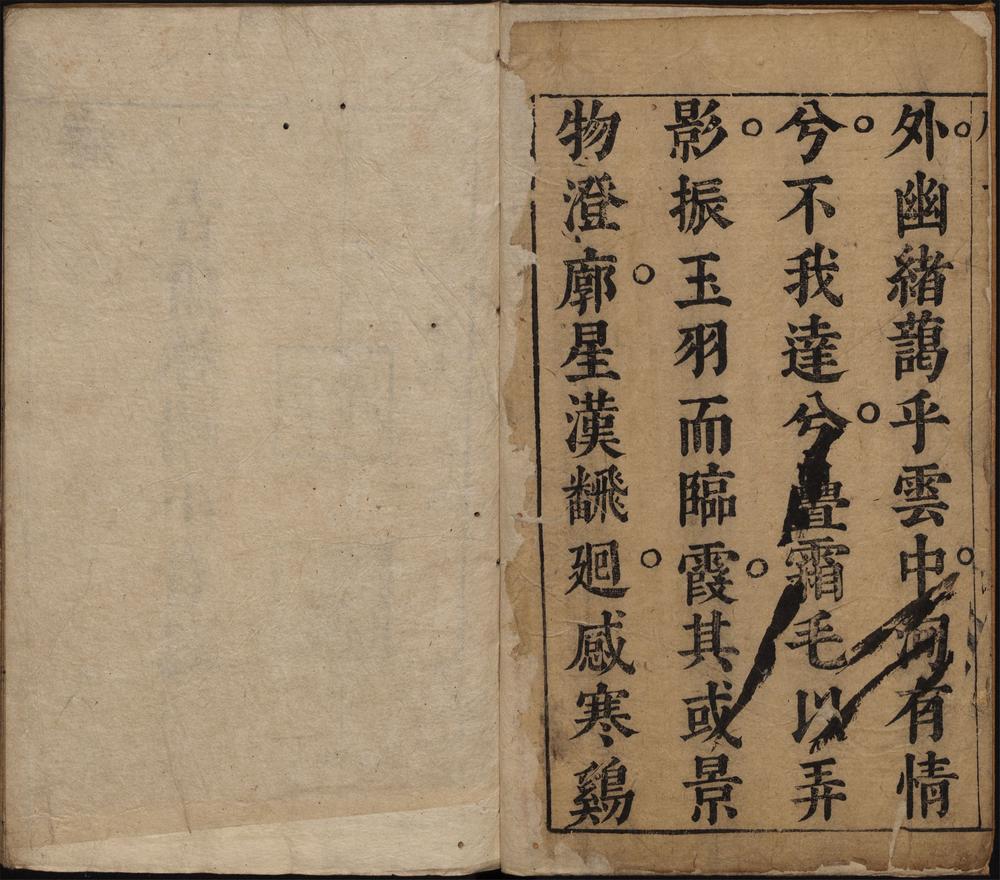 外幽緒藹乎雲中何有情
兮不我達兮疊霜毛以弄
影振玉羽而臨霞其或景
物澄廓星漢飜廻感寒鷄